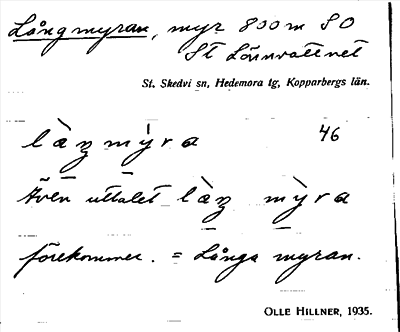 Långmyran, myr 800 m SO
St Lönnvattnet
St. Skedvi sn, Hedemora tg, Kopparbergs län.
là̱ŋmy̆ra 46
Även uttalet là̱ŋ mỳra
förekommer. = Långa myran.
OLLE HILLNER, 1935.